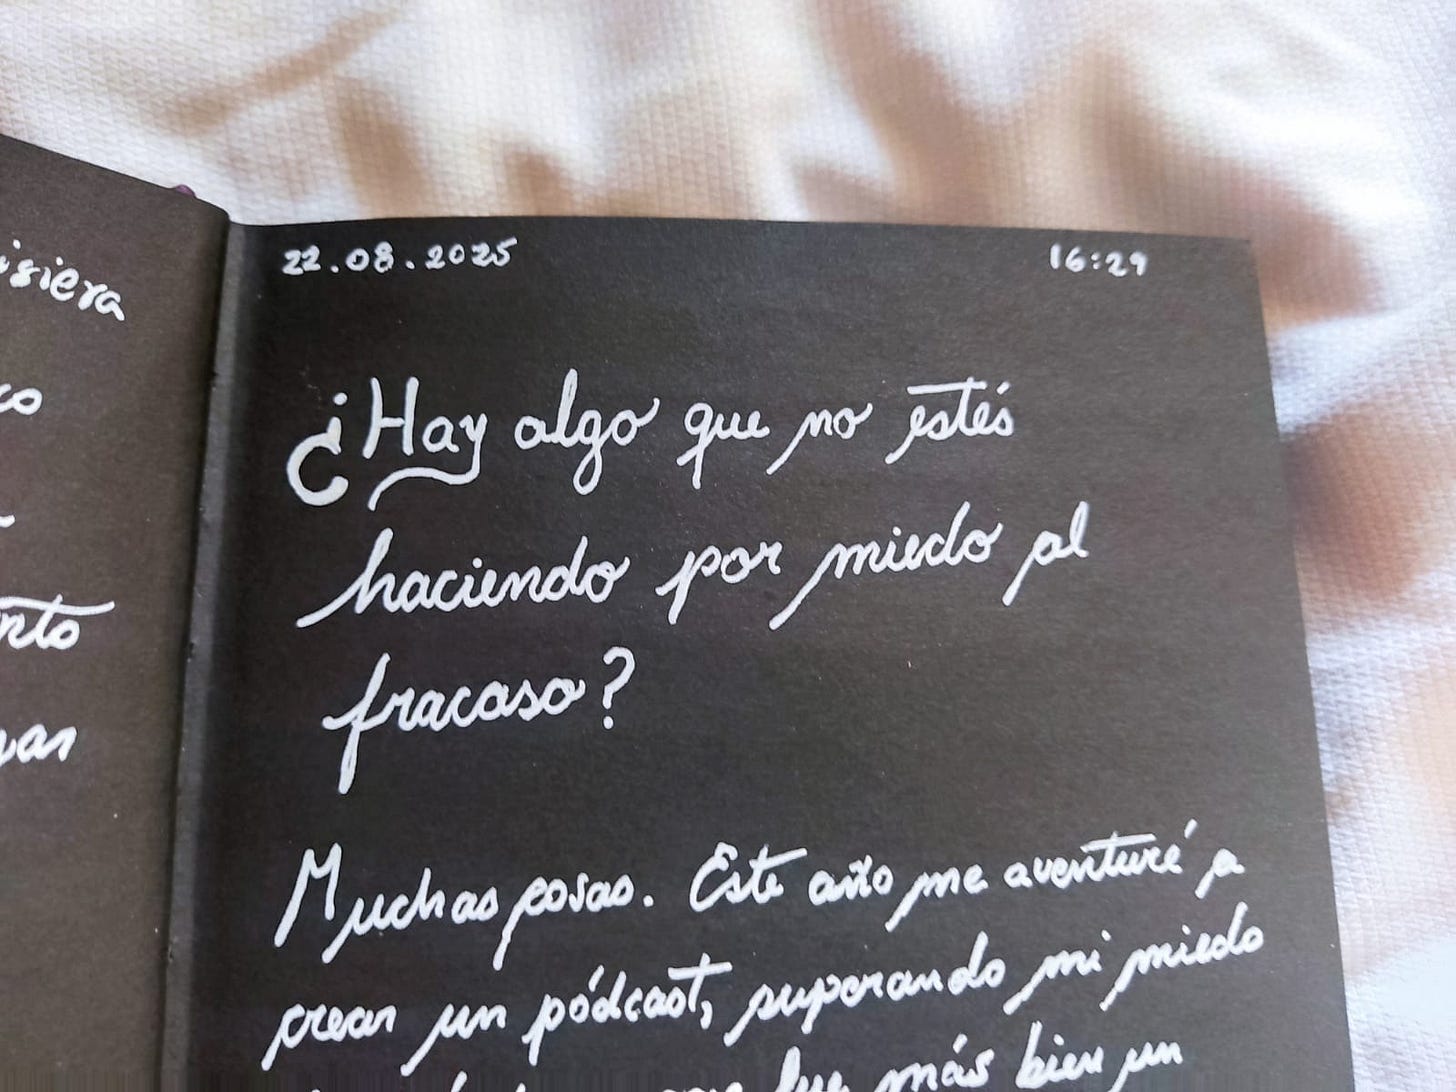 22.08.2025 16:29
¿Hay algo que no estés
haciendo por miedo al
fracaso?
Muchas cosas. Este año me aventuré a
crear un pódcast, superando mi miedo
fue más bien un